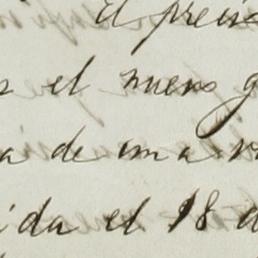 el preis
s el nuevo g
a de una v
ida el 18 d